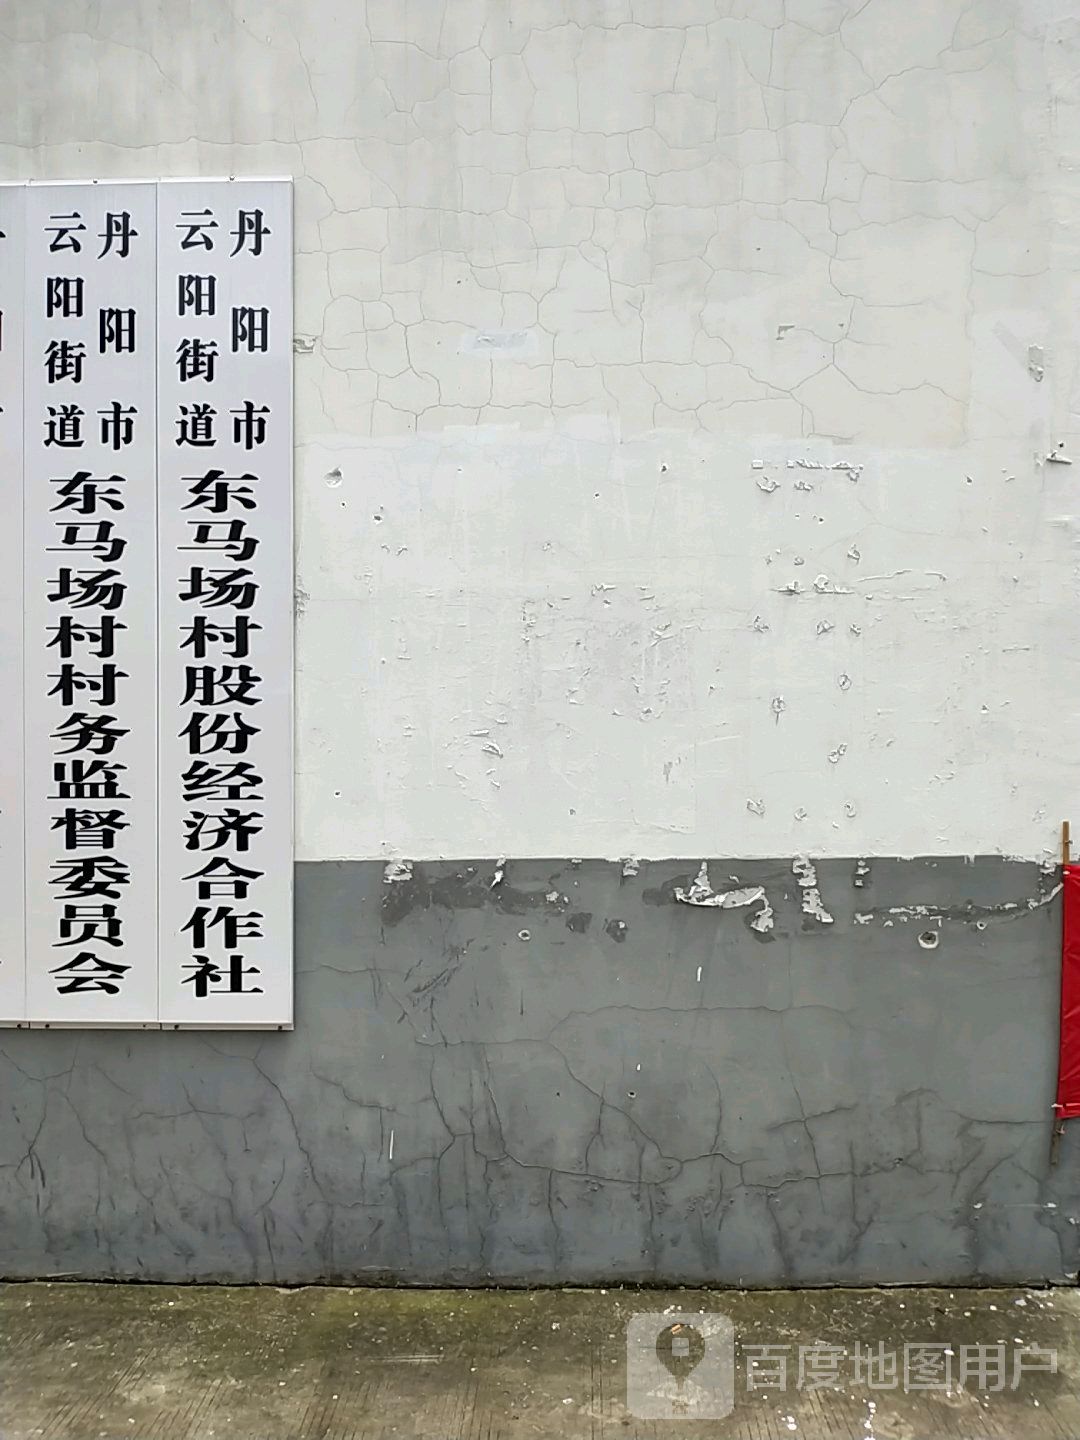 丹阳市
云阳街道
东马场村股份经济合作社
丹阳市
云阳街道
东马场村村务监督委员会
百度地图用户